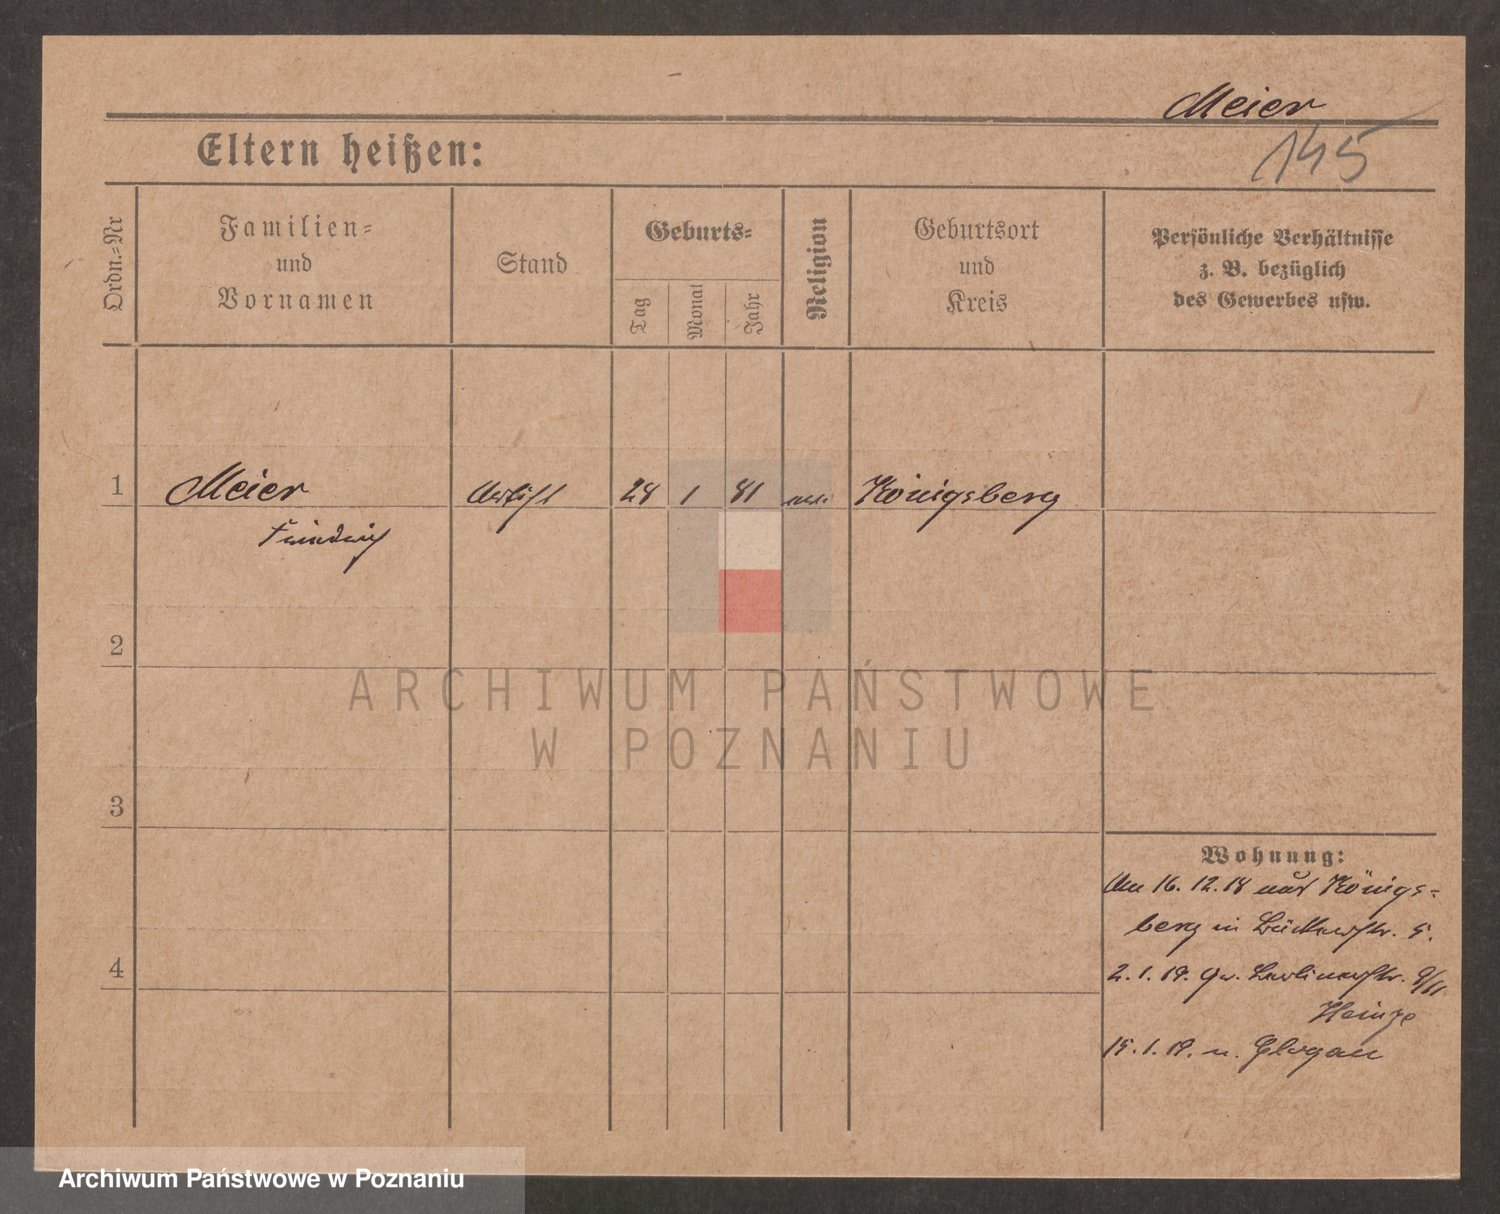 Meier
145
Eltern heißen:
Ordn.=Nr
Familien=
und
Vornamen
Stand
Geburts=
Tag
Monat
Jahr
Religion
Geburtsort
und
Kreis
Persönliche Verhältnisse
z. B. bezüglich
des Gewerbes usw.
1
Meier
Artist
28
1
81
Königsberg
Friedrich
2
ARCHIWUM PAŃSTWOWE
W POZNANIU
3
Wohnung:
Am 16. 12. 18 aus Königs=
berg in
4
2. 1. 19. Gr. Berlinerstr. 9/11
Heinze
15. 1. 19. n. Glogau
Archiwum Państwowe w Poznaniu